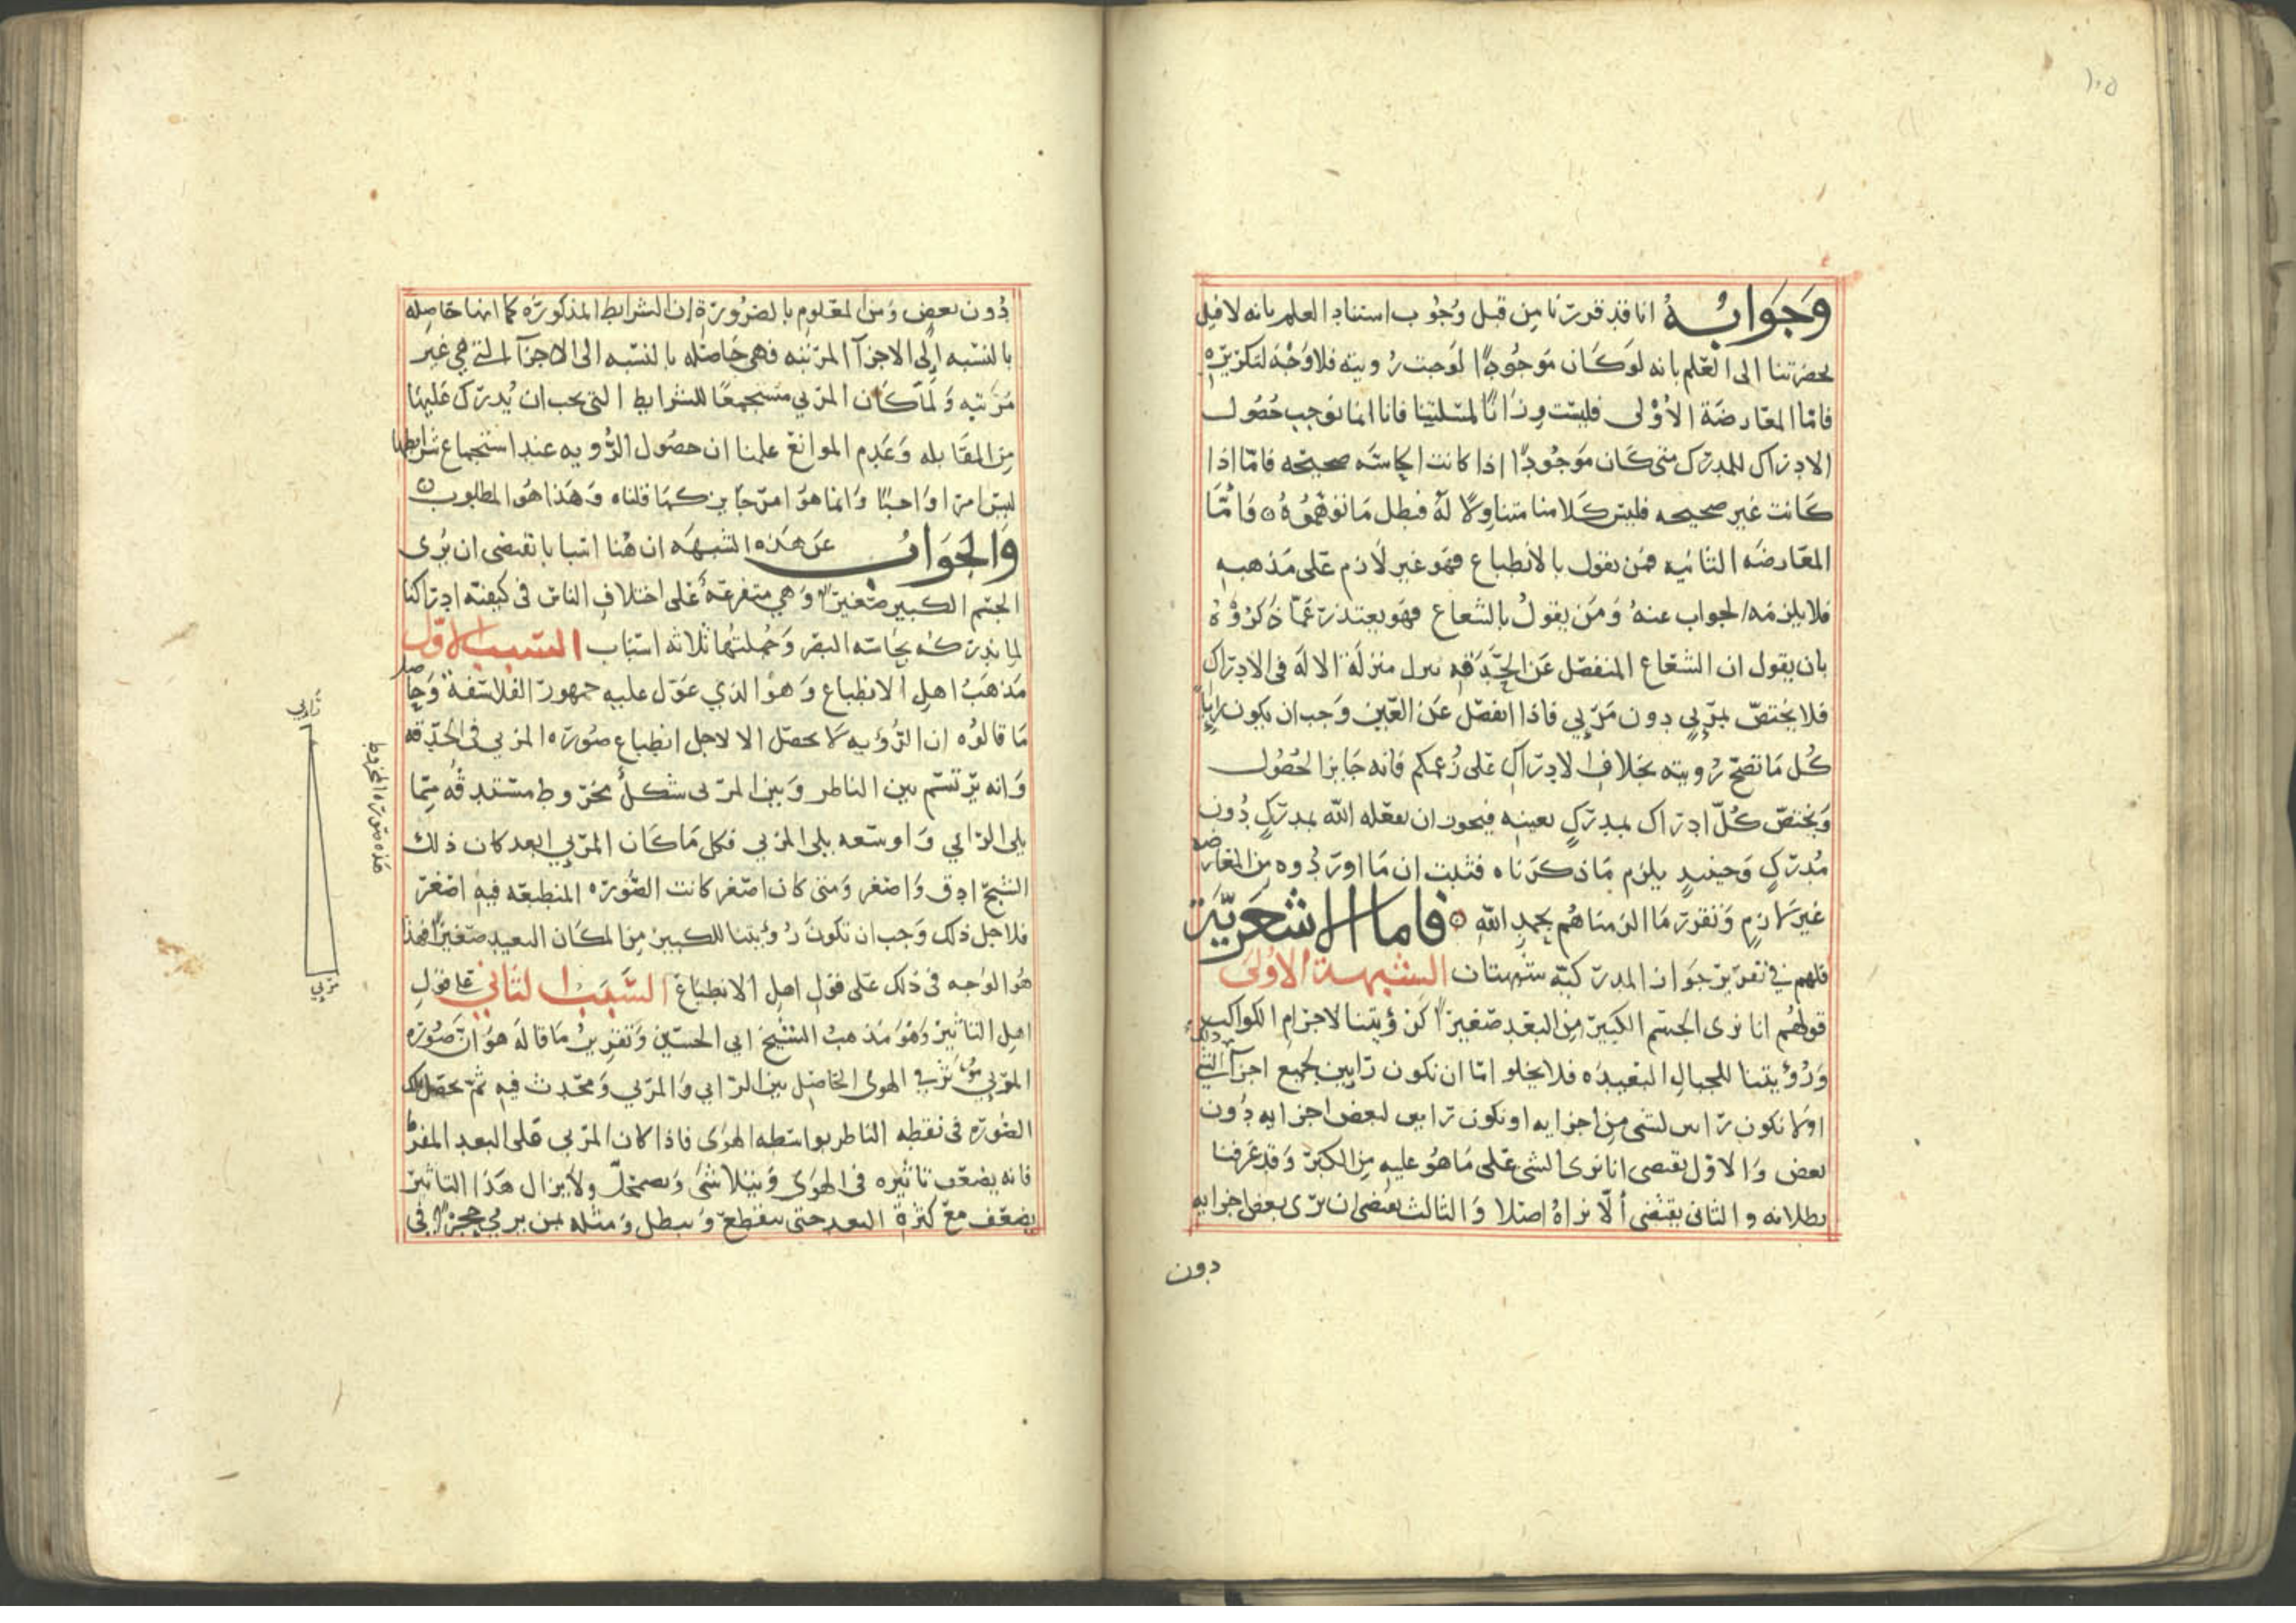 ١٠٥
وَجَوَابُهُ انا قد قررنا مِن قبل وُجُوب استناد العلم بانه لا فيل
بحضرتنا الى العلم بانه لو كَان مَوجُودًا لوَجبت رُويته فلا وَجْهَ لتكريره
فامّا المعَارضَة الأوْلى فليسَت وِزَانًا لمسَلتنِا فانا انما نوجب حُصُول
الادرَاك للمدرَك متى كَان مَوجُودًا اذا كانت الحاسّه صحيحَه فامّا اذا
كَانت غير صحيحه فليسَ كَلامنا متناوِلًا لهُ فبطل مَا توَهّمُوهُ ۞ وَامَّا
المعَارضَه الثانيه فمَن يقول بالانطباع فهو غير لَازم عَلى مَذهبهِ
فلا يلزمُه الجواب عنهُ وَمَن يقولُ بالشعاع فهوَ يعتذر عَمّا ذَكرُوْهُ
بان يقول ان الشعَاع المنفصَل عَن الحَدَقهِ ينزل منزلَة الالَه في الادرَاك
فلا يختصّ بمرّئيٍ دون مَرّئيٍ فاذا انفصَل عَن العَين وَجب ان يكون رايًا
كُل مَا تصَحّ رُويته بخلاف الادرَاك عَلى زُعمكم فانه جَايز الحُصُول
وَيختصّ كُلّ ادرَاك بمدرَكٍ بعينهِ فيجوز ان يفعَله اللّه بمدرَكٍ دُون
مُدرَكٍ وَحينيذٍ يلزم مَا ذكرَناه فثبت ان مَا اورَدُوه مِن المعَارضه
غير لَازمٍ وَتقرر مَا الزمنَاهُم بحمدِ اللّهِ ۞ فاما الاشعَرِيَّة
فلهم في تقرير جَوَاز المدرَكيّه شبهتان الشبهة الأوْلى
قولهُم انا نرى الجسم الكبير مِن البعد صَغيرًا كرؤيتنا لاجرَام الكواكب
وَرُؤيتنا للجبالِ البعيدَه فلا يخلو امّا ان نكون رَايين لجميع اجزآء الشي
اوْلا نكون رَايين لشي مِن اجزايه او نكون رَايين لبعض اجزايه دُون
بعض وَالاوّل يقتضي انا نرى الشي عَلى مَا هُو عليهِ مِن الكبر وَقد عَرفنا
بطلانه والثاني يقتضي ألّا نراهُ اصَلا وَالثالث يقتضي ان يرَى بعض اجزايه
دون
دُون بعض وَمن المعَلوم بالضرُورَة ان الشرايط المذكورَه كما انها حَاصِله
بالنسَبه اِلى الاجزآ المرَئيه فهي حَاصَله بالنسَبه الى الاجزآ التي هي غير
مَرَئيه وَلمّا كَان المرَئي مستجمعًا للشرايط التي يجب ان يُدرَك عَليهَا
مِن المقَابله وَعَدم الموانع علمنا ان حصُول الرُّويه عند استجماع شرايطها
ليسَ امرًا وَاجبًا وَانما هوَ امرٌ جَايز كمَا قلناه وَهَذا هُو المطلوب ۞
وَالجَوَابُ عَن هَذه الشبهَه ان هُنا اسَبابا تقتضى ان يُرى
الجسَم الكبير صَغيرًا وَهي متفرعَةٌ عَلى اختلافِ الناس في كيفيّه ادرَاكنا
لِما ندرَكه بحَاسّه البصَر وَجُملتهَا ثلاثه اسَبَاب السّبب الاوّل
مَذهَبُ اهل الانطباع وَهوَ الذي عَوّل عليهِ جمهور الفلاسَفة وَحَاصل
مَا قالوُه ان الرُّؤيه لا تحصَل الا لاجل انطباع صُورَه المرئي في الحَدقه
وَانه يرَتسَم بين الناظر وَبين المرَئى شكلٌ مخرُوط مستدقّه مِمّا
يلي الرَائي وَاوسَعه يلى المرئي فكل مَا كَان المرَئي ابعد كان ذلك
الشبَح ادق وَاصغر وَمتى كان اصَغر كانت الصُّورَه المنطبعَه فيهِ اصَغر
فلاجل ذلك وَجب ان تكونَ رُؤيتنا للكبير مِن المكَان البعيد صَغيرًا فهذا
هُو الوَاجه في ذلك عَلى قوَل اهل الانطبَاع السَّبَب الثاني عَلى قوَلِ
اهل التاثير وَهوَ مَذهبُ الشيخ ابي الحسَين وَتقرِيرُ مَا قالهَ هوَ انَّ صُورَه
المرّئي مُوَثرَة في الهوى الحَاصِل بين الرَائي وَالمرّئي وَتحَدث فيهِ ثمَّ تحصَل تلك
الصُورَه في نقطه الناظر بواسَطه الهوَى فاذا كان المرّئي عَلى البعد المفرَط
فانه يضعَف تاثيره في الهوَى وَيتلاشَى وَيضمحَلّ ولا يزال هَذا التاثير
يضعَف معَ كثرَةِ البعد حتى ينقطعَ وَيبطل وَمثله بمن يرمي حجرًا في
رَائي
هَذه صُورَه المخرُوط
مرئي